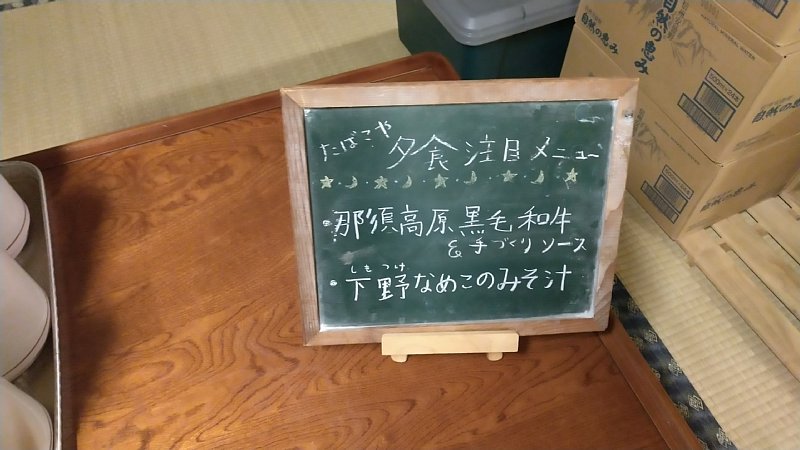 たばこや 夕食 注目 メニュー
・那須高原 黒毛和牛
& 手づくりソース
しもつけ
・下野なめこのみそ汁
自然の恵み
NATURAL MINERAL WATER
500ml×24本
自然の恵み